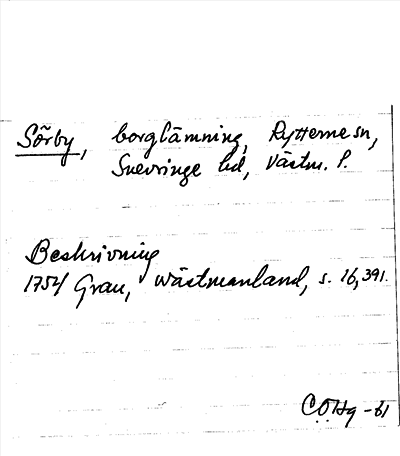 Sörby, borglämning, Rytterne sn,
Snevringe hd, Västm. l.
Beskrivning
1754 Grau, Wästmanland, s. 16, 391.
C.Ö.Hg -61